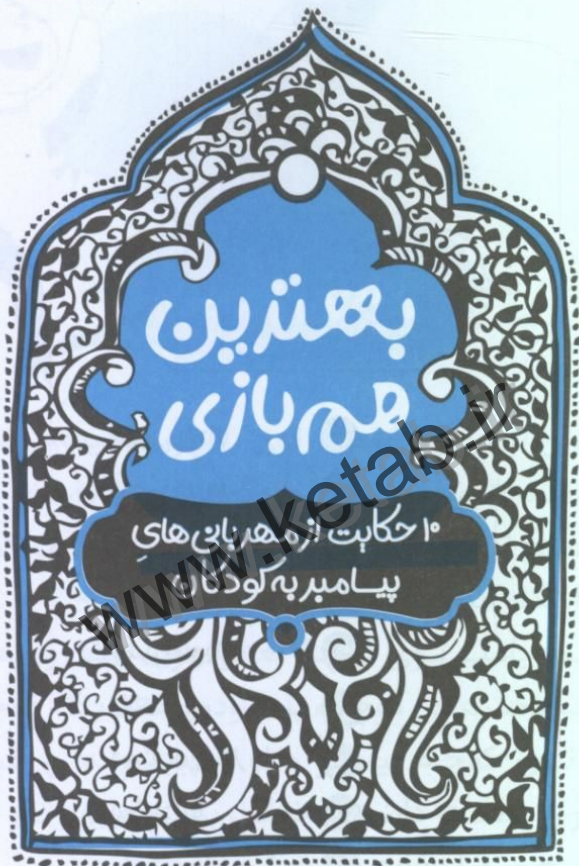 بهترین
هم بازی
۱۰ حکایت از مهربانی‌هایِ
پیامبر به کودکان
www.ketab.ir